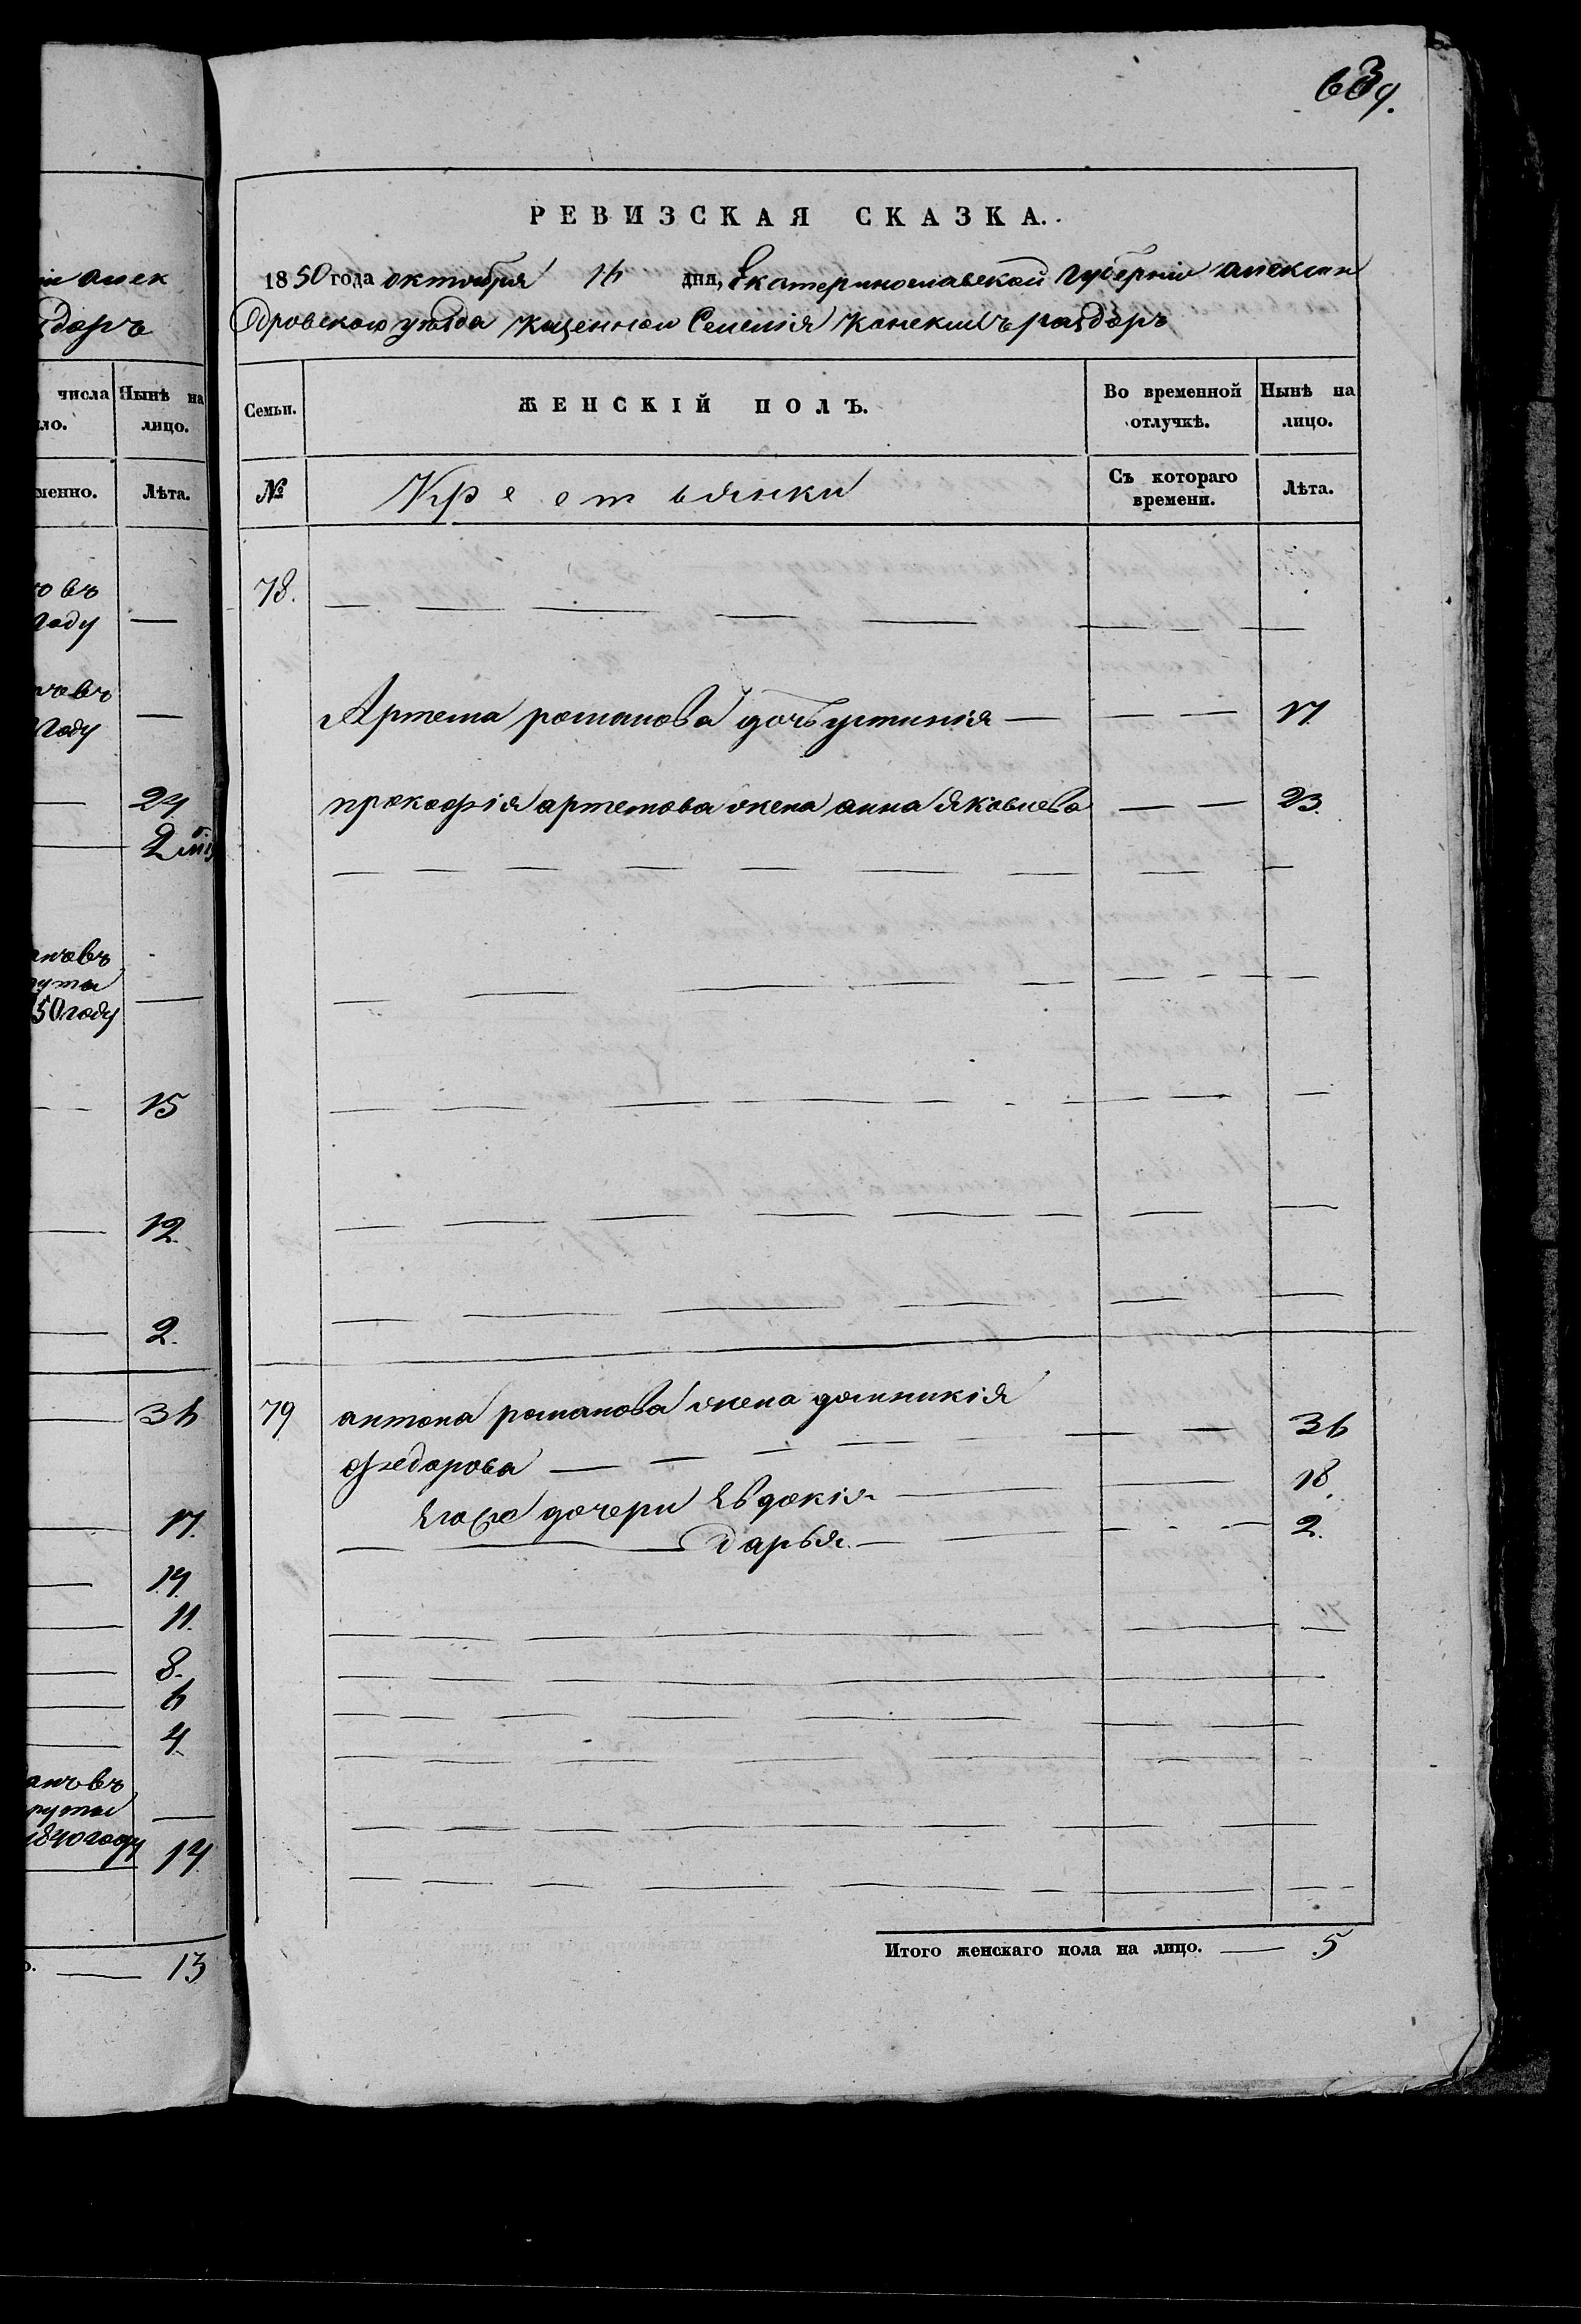 639.
РЕВИЗСКАЯ СКАЗКА.
1850 года октября 16 дня, Екатеринославской губерніи алексан
дровскаго уѣзда казеннои Селенія Конскихъ раздоръ
Семьи. ЖЕНСКІЙ ПОЛЪ. Во временной отлучкѣ. Нынѣ на лицо.
№ Крестьянки Съ котораго времени. Лѣта.
78.
Артема романова дочь устинія — — — 17
прокофія артемова жена анна яковлева — — 23
79 антона романова жена домникія
федорова — — — — — — — 36
Егоже дочери Евдокія — — — 18.
дарья — — — 2.
Итого женскаго пола на лицо. — 5
алек
доръ
числа Нынѣ на
ло. лицо.
менно. Лѣта.
въ
году —
въ
году —
— 24
— 2 мѣ
въ
50 году —
— 15
— 12.
— 2.
— 36
— 17.
— 14.
— 11.
— 8.
— 6
— 4.
въ
—
1840 году 14
— 13